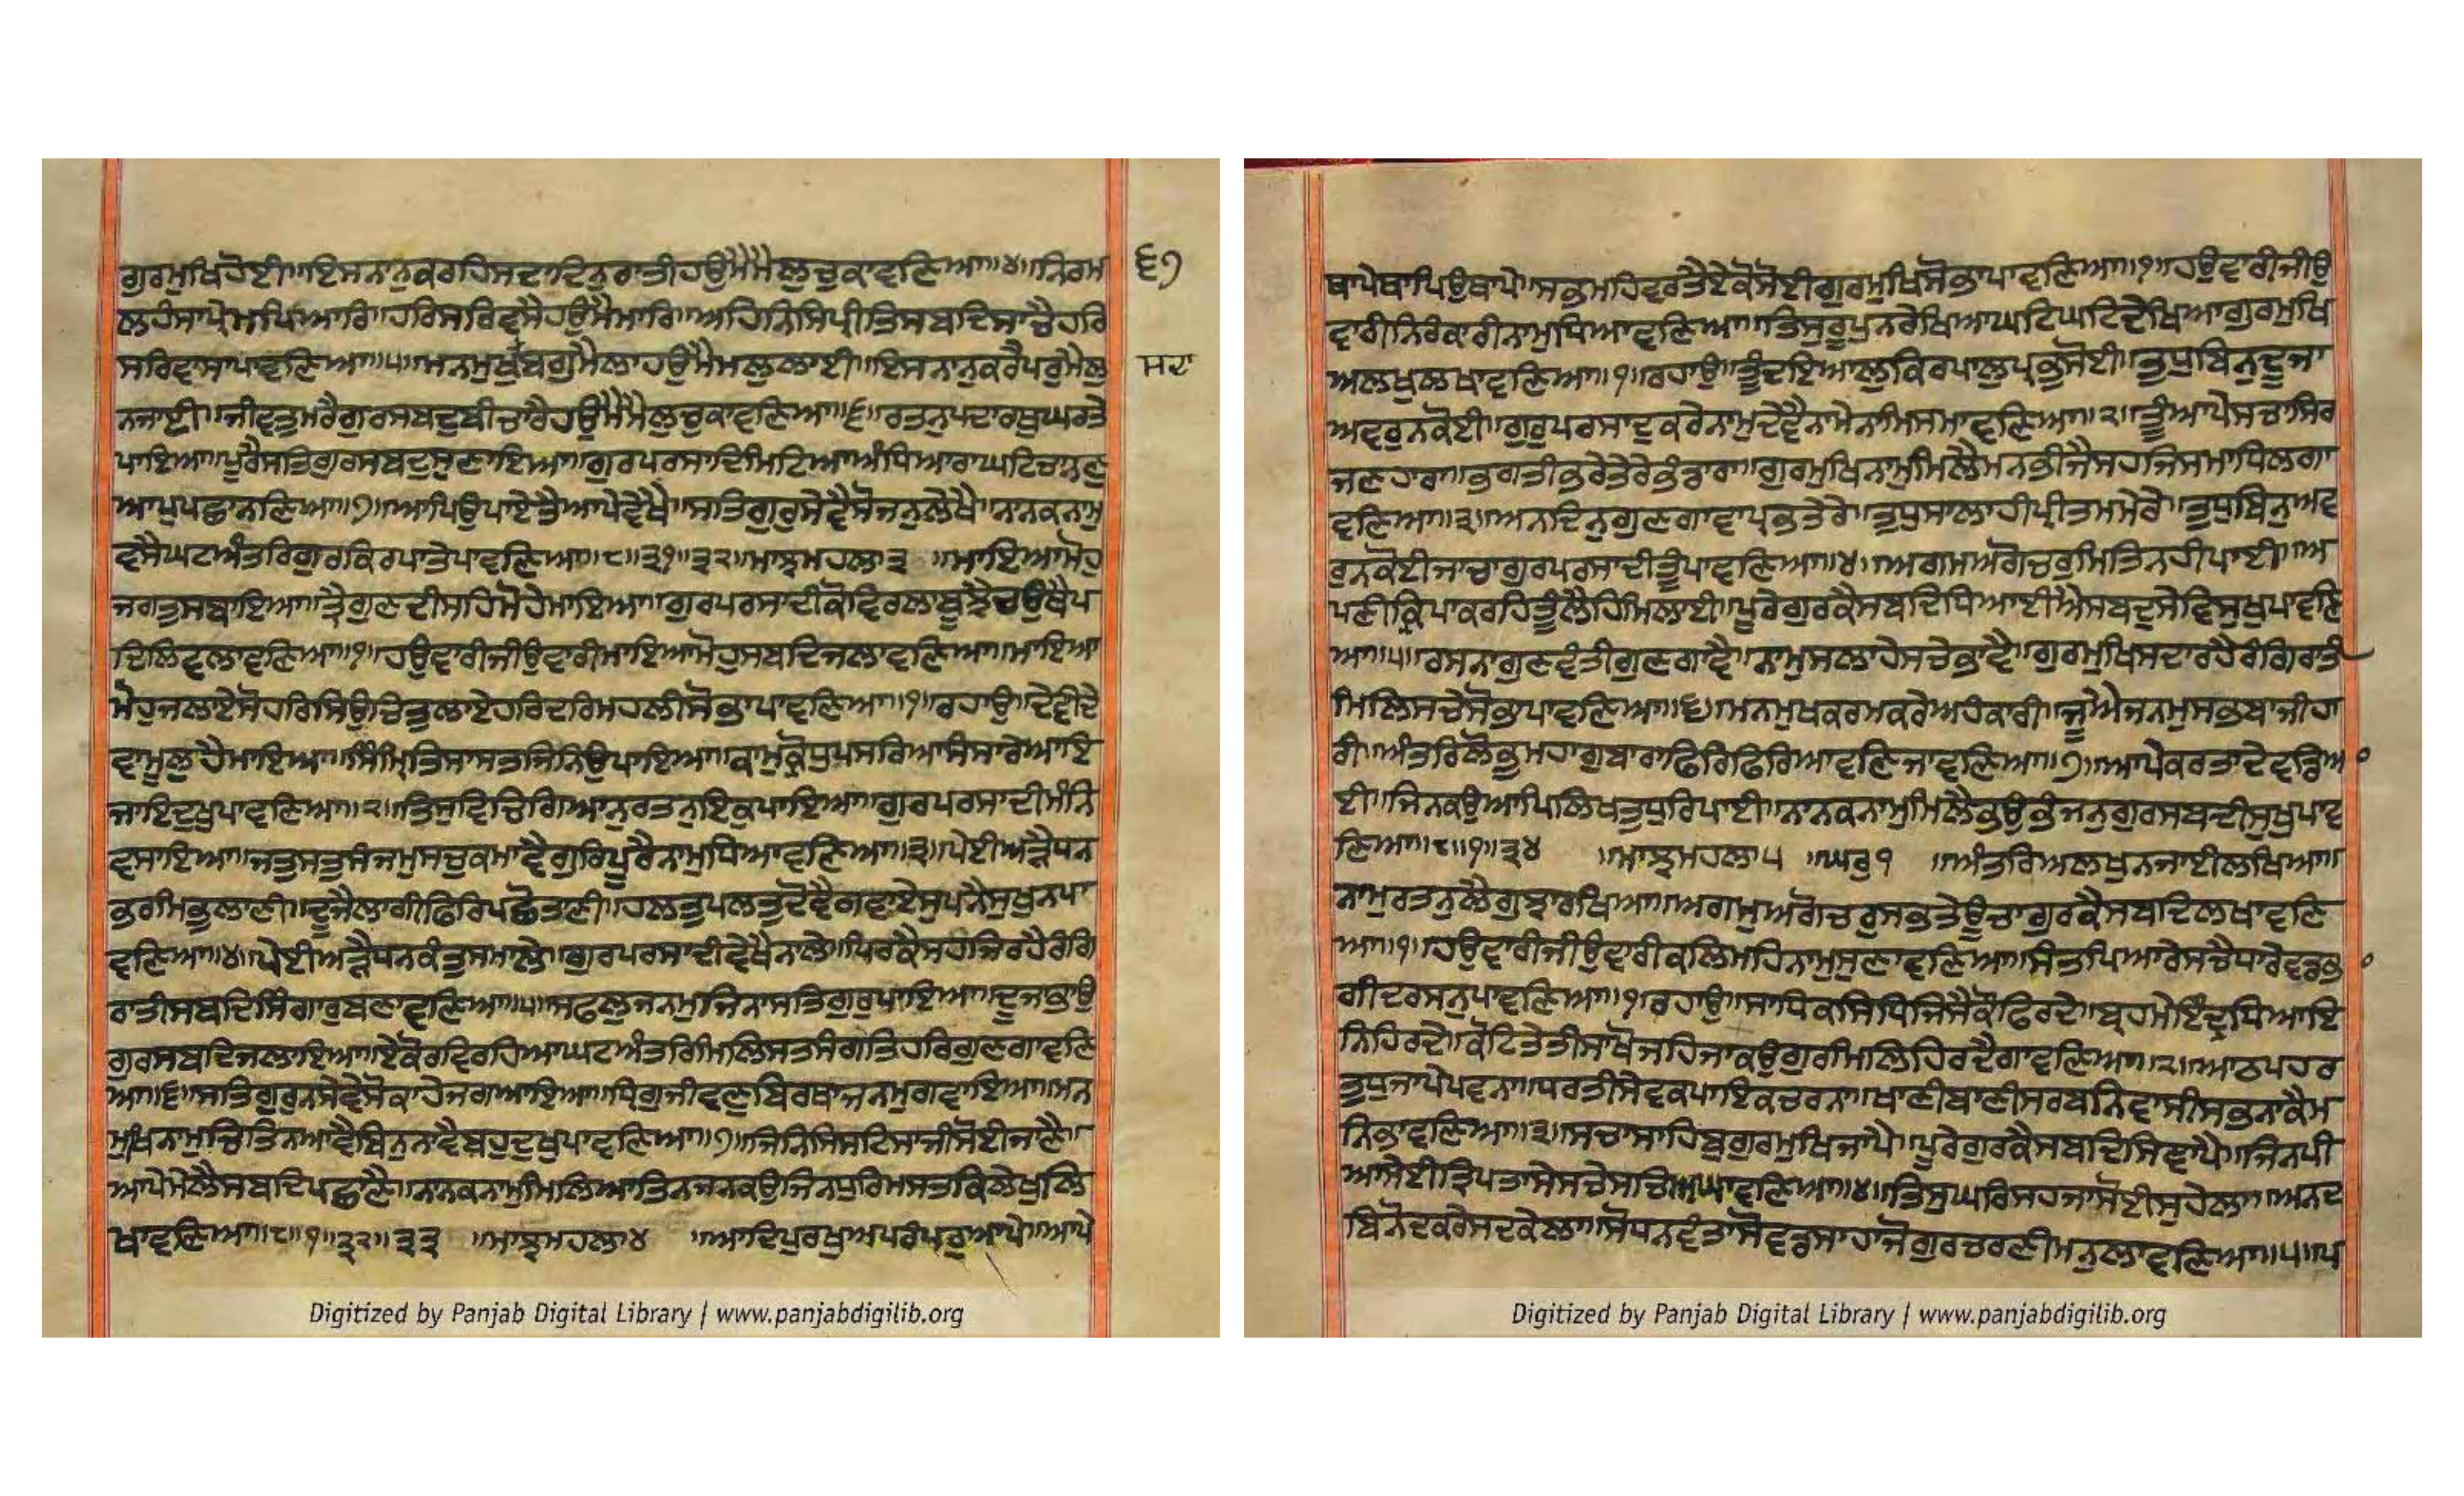 ਗੁਰਮੁਖਿਹੋਈ॥ਇਸਨਾਨੁਕਰਹਿਸਦਾਦਿਨੁਰਾਤੀਹਉਮੈਮੈਲੁਚੁਕਾਵਣਿਆ॥੪॥ਨਿਰਮ
ਲਹੰਸਾਪ੍ਰੇਮਪਿਆਰਿ॥ਹਰਿਸਰਿਵਸੈਹਉਮੈਮਾਰਿ॥ਅਹਿਨਿਸਿਪ੍ਰੀਤਿਸਬਦਿਸਾਚੈਹਰਿ
ਸਰਿਵਾਸਾਪਾਵਣਿਆ॥੫॥ਮਨਮੁਖੁਬਗੁਮੈਲਾਹਉਮੈਮਲੁਲਾਈ॥ਇਸਨਾਨੁਕਰੈਪਰੁਮੈਲੁ
ਨਜਾਈ॥ਜੀਵਤੁਮਰੈਗੁਰਸਬਦੁਬੀਚਾਰੈਹਉਮੈਮੈਲੁਚੁਕਾਵਣਿਆ॥੬॥ਰਤਨੁਪਦਾਰਥੁਘਰਤੇ
ਪਾਇਆ॥ਪੂਰੈਸਤਿਗੁਰਸਬਦੁਸੁਣਾਇਆ॥ਗੁਰਪਰਸਾਦਿਮਿਟਿਆਅੰਧਿਆਰਾਘਟਿਚਾਨਣੁ
ਆਪੁਪਛਾਨਣਿਆ॥੭॥ਆਪਿਉਪਾਏਤੈਆਪੇਵੇਖੈ॥ਸਤਿਗੁਰੁਸੇਵੈਸੋਜਨੁਲੇਖੈ॥ਨਾਨਕਨਾਮੁ
ਵਸੈਘਟਅੰਤਰਿਗੁਰਕਿਰਪਾਤੇਪਾਵਣਿਆ॥੮॥੩੧॥੩੨॥ਮਾਝਮਹਲਾ੩ ॥ਮਾਇਆਮੋਹੁ
ਜਗਤੁਸਬਾਇਆ॥ਤ੍ਰੈਗੁਣਦੀਸਹਿਮੋਹੇਮਾਇਆ॥ਗੁਰਪਰਸਾਦੀਕੋਵਿਰਲਾਬੂਝੈਚਉਥੈਪ
ਦਿਲਿਵਲਾਵਣਿਆ॥੧॥ਹਉਵਾਰੀਜੀਉਵਾਰੀਮਾਇਆਮੋਹੁਸਬਦਿਜਲਾਵਣਿਆ॥ਮਾਇਆ
ਮੋਹੁਜਲਾਏਸੋਹਰਿਸਿਉਚਿਤੁਲਾਏਹਰਿਦਰਿਮਹਲੀਸੋਭਾਪਾਵਣਿਆ॥੧॥ਰਹਾਉ॥ਦੇਵੀਦੇ
ਵਾਮੂਲੁਹੈਮਾਇਆ॥ਸਿੰਮ੍ਰਿਤਿਸਾਸਤਜਿੰਨਿਉਪਾਇਆ॥ਕਾਮੁਕ੍ਰੋਧੁਪਸਰਿਆਸੰਸਾਰੇਆਇ
ਜਾਇਦੁਖੁਪਾਵਣਿਆ॥੨॥ਤਿਸੁਵਿਚਿਗਿਆਨੁਰਤਨੁਇਕੁਪਾਇਆ॥ਗੁਰਪਰਸਾਦੀਮੰਨਿ
ਵਸਾਇਆ॥ਜਤੁਸਤੁਸੰਜਮੁਸਚੁਕਮਾਵੈਗੁਰਿਪੂਰੈਨਾਮੁਧਿਆਵਣਿਆ॥੩॥ਪੇਈਅੜੈਧਨ
ਭਰਮਿਭੁਲਾਣੀ॥ਦੂਜੈਲਾਗੀਫਿਰਿਪਛੋਤਾਣੀ॥ਹਲਤੁਪਲਤੁਦੋਵੈਗਵਾਏਸੁਪਨੈਸੁਖੁਨਪਾ
ਵਣਿਆ॥੪॥ਪੇਈਅੜੈਧਨਕੰਤੁਸਮਾਲੇ॥ਗੁਰਪਰਸਾਦੀਵੇਖੈਨਾਲੇ॥ਪਿਰਕੈਸਹਜਿਰਹੈਰੰਗਿ
ਰਾਤੀਸਬਦਿਸਿੰਗਾਰੁਬਣਾਵਣਿਆ॥੫॥ਸਫਲੁਜਨਮੁਜਿਨਾਸਤਿਗੁਰੁਪਾਇਆ॥ਦੂਜਾਭਾਉ
ਗੁਰਸਬਦਿਜਲਾਇਆ॥ਏਕੋਰਵਿਰਹਿਆਘਟਅੰਤਰਿਮਿਲਿਸਤਸੰਗਤਿਹਰਿਗੁਣਗਾਵਣਿ
ਆ॥੬॥ਸਤਿਗੁਰੁਨਸੇਵੇਸੋਕਾਹੇਜਗਆਇਆ॥ਧ੍ਰਿਗੁਜੀਵਣੁਬਿਰਥਾਜਨਮੁਗਵਾਇਆ॥ਮਨ
ਮੁਖਿਨਾਮੁਚਿਤਿਨਆਵੈਬਿਨੁਨਾਵੈਬਹੁਦੁਖੁਪਾਵਣਿਆ॥੭॥ਜਿਨਿਸਿਸਟਿਸਾਜੀਸੋਈਜਾਣੈ॥
ਆਪੇਮੇਲੈਸਬਦਿਪਛਾਣੈ॥ਨਾਨਕਨਾਮੁਮਿਲਿਆਤਿਨਜਨਕਉਜਿਨਧੁਰਿਮਸਤਕਿਲੇਖੁਲਿ
ਖਾਵਣਿਆ॥੮॥੧॥੩੨॥੩੩ ॥ਮਾਝਮਹਲਾ੪ ॥ਆਦਿਪੁਰਖੁਅਪਰੰਪਰੁਆਪੇ॥ਆਪੇ
੬੭
Digitized by Panjab Digital Library | www.panjabdigilib.org
ਥਾਪੇਥਾਪਿਉਥਾਪੇ॥ਸਭਮਹਿਵਰਤੈਏਕੋਸੋਈਗੁਰਮੁਖਿਸੋਭਾਪਾਵਣਿਆ॥੧॥ਹਉਵਾਰੀਜੀਉ
ਵਾਰੀਨਿਰੰਕਾਰੀਨਾਮੁਧਿਆਵਣਿਆ॥ਤਿਸੁਰੂਪੁਨਰੇਖਿਆਘਟਿਘਟਿਦੇਖਿਆਗੁਰਮੁਖਿ
ਅਲਖੁਲਖਾਵਣਿਆ॥੧॥ਰਹਾਉ॥ਤੂੰਦਇਆਲੁਕਿਰਪਾਲੁਪ੍ਰਭੁਸੋਈ॥ਤੁਧੁਬਿਨੁਦੂਜਾ
ਅਵਰੁਨਕੋਈ॥ਗੁਰੁਪਰਸਾਦੁਕਰੇਨਾਮੁਦੇਵੈਨਾਮੇਨਾਮਿਸਮਾਵਣਿਆ॥੨॥ਤੂੰਆਪੇਸਚਾਸਿਰ
ਜਣਹਾਰਾ॥ਭਗਤੀਭਰੇਤੇਰੇਭੰਡਾਰਾ॥ਗੁਰਮੁਖਿਨਾਮੁਮਿਲੈਮਨਭੀਜੈਸਹਜਿਸਮਾਧਿਲਗਾ
ਵਣਿਆ॥੩॥ਅਨਦਿਨੁਗੁਣਗਾਵਾਪ੍ਰਭਤੇਰੇ॥ਤੁਧੁਸਾਲਾਹੀਪ੍ਰੀਤਮਮੇਰੇ॥ਤੁਧੁਬਿਨੁਅਵ
ਰੁਨਕੋਈਜਾਚਾਗੁਰਪਰਸਾਦੀਤੂੰਪਾਵਣਿਆ॥੪॥ਅਗਮਅਗੋਚਰੁਮਿਤਿਨਹੀਪਾਈ॥ਅ
ਪਣੀਕ੍ਰਿਪਾਕਰਹਿਤੂੰਲੈਹਿਮਿਲਾਈ॥ਪੂਰੇਗੁਰਕੈਸਬਦਿਧਿਆਈਐਸਬਦੁਸੇਵਿਸੁਖੁਪਾਵਣਿ
ਆ॥੫॥ਰਸਨਾਗੁਣਵੰਤੀਗੁਣਗਾਵੈ॥ਨਾਮੁਸਲਾਹੇਸਚੇਭਾਵੈ॥ਗੁਰਮੁਖਿਸਦਾਰਹੈਰੰਗਿਰਾਤੀ
ਮਿਲਿਸਚੇਸੋਭਾਪਾਵਣਿਆ॥੬॥ਮਨਮੁਖਕਰਮਕਰੇਅਹੰਕਾਰੀ॥ਜੂਐਜਨਮੁਸਭਬਾਜੀਹਾ
ਰੀ॥ਅੰਤਰਿਲੋਭੁਮਹਾਗੁਬਾਰਾਫਿਰਿਫਿਰਿਆਵਣਿਜਾਵਣਿਆ॥੭॥ਆਪੇਕਰਤਾਦੇਵਡਿਆ
ਈ॥ਜਿਨਕਉਆਪਿਲਿਖਤੁਧੁਰਿਪਾਈ॥ਨਾਨਕਨਾਮੁਮਿਲੈਭਉਭੰਜਨੁਗੁਰਸਬਦੀਸੁਖੁਪਾਵ
ਣਿਆ॥੮॥੧॥੩੪ ॥ਮਾਝਮਹਲਾ੫ ॥ਘਰੁ੧ ॥ਅੰਤਰਿਅਲਖੁਨਜਾਈਲਖਿਆ॥
ਨਾਮੁਰਤਨੁਲੈਗੁਝਾਰਖਿਆ॥ਅਗਮੁਅਗੋਚਰੁਸਭਤੇਊਚਾਗੁਰਕੈਸਬਦਿਲਖਾਵਣਿ
ਆ॥੧॥ਹਉਵਾਰੀਜੀਉਵਾਰੀਕਲਿਮਹਿਨਾਮੁਸੁਣਾਵਣਿਆ॥ਸੰਤਪਿਆਰੇਸਚੈਧਾਰੇਵਡਭਾ
ਗੀਦਰਸਨੁਪਾਵਣਿਆ॥੧॥ਰਹਾਉ॥ਸਾਧਿਕਸਿਧਜਿਸੈਕਉਫਿਰਦੇ॥ਬ੍ਰਹਮੇਇੰਦ੍ਰਧਿਆਇ
ਨਿਹਿਰਦੇ॥ਕੋਟਿਤੇਤੀਸਾਖੋਜਹਿਤਾਕਉਗੁਰਮਿਲਿਹਿਰਦੈਗਾਵਣਿਆ॥੨॥ਆਠਪਹਰ
ਤੁਧੁਜਾਪੇਪਵਨਾ॥ਧਰਤੀਸੇਵਕਪਾਇਕਚਰਨਾ॥ਖਾਣੀਬਾਣੀਸਰਬਨਿਵਾਸੀਸਭਨਾਕੈਮ
ਨਿਭਾਵਣਿਆ॥੩॥ਸਚਾਸਾਹਿਬੁਗੁਰਮੁਖਿਜਾਪੈ॥ਪੂਰੇਗੁਰਕੈਸਬਦਿਸਿਞਾਪੈ॥ਜਿਨਪੀ
ਆਸੇਈਤ੍ਰਿਪਤਾਸੇਸਚੇਸਚਿਅਘਾਵਣਿਆ॥੪॥ਤਿਸੁਘਰਿਸਹਜਾਸੋਈਸੁਹੇਲਾ॥ਅਨਦ
ਬਿਨੋਦਕਰੇਸਦਕੇਲਾ॥ਸੋਧਨਵੰਤਾਸੋਵਡਸਾਹਾਜੋਗੁਰਚਰਣੀਮਨੁਲਾਵਣਿਆ॥੫॥ਪ
Digitized by Panjab Digital Library | www.panjabdigilib.org